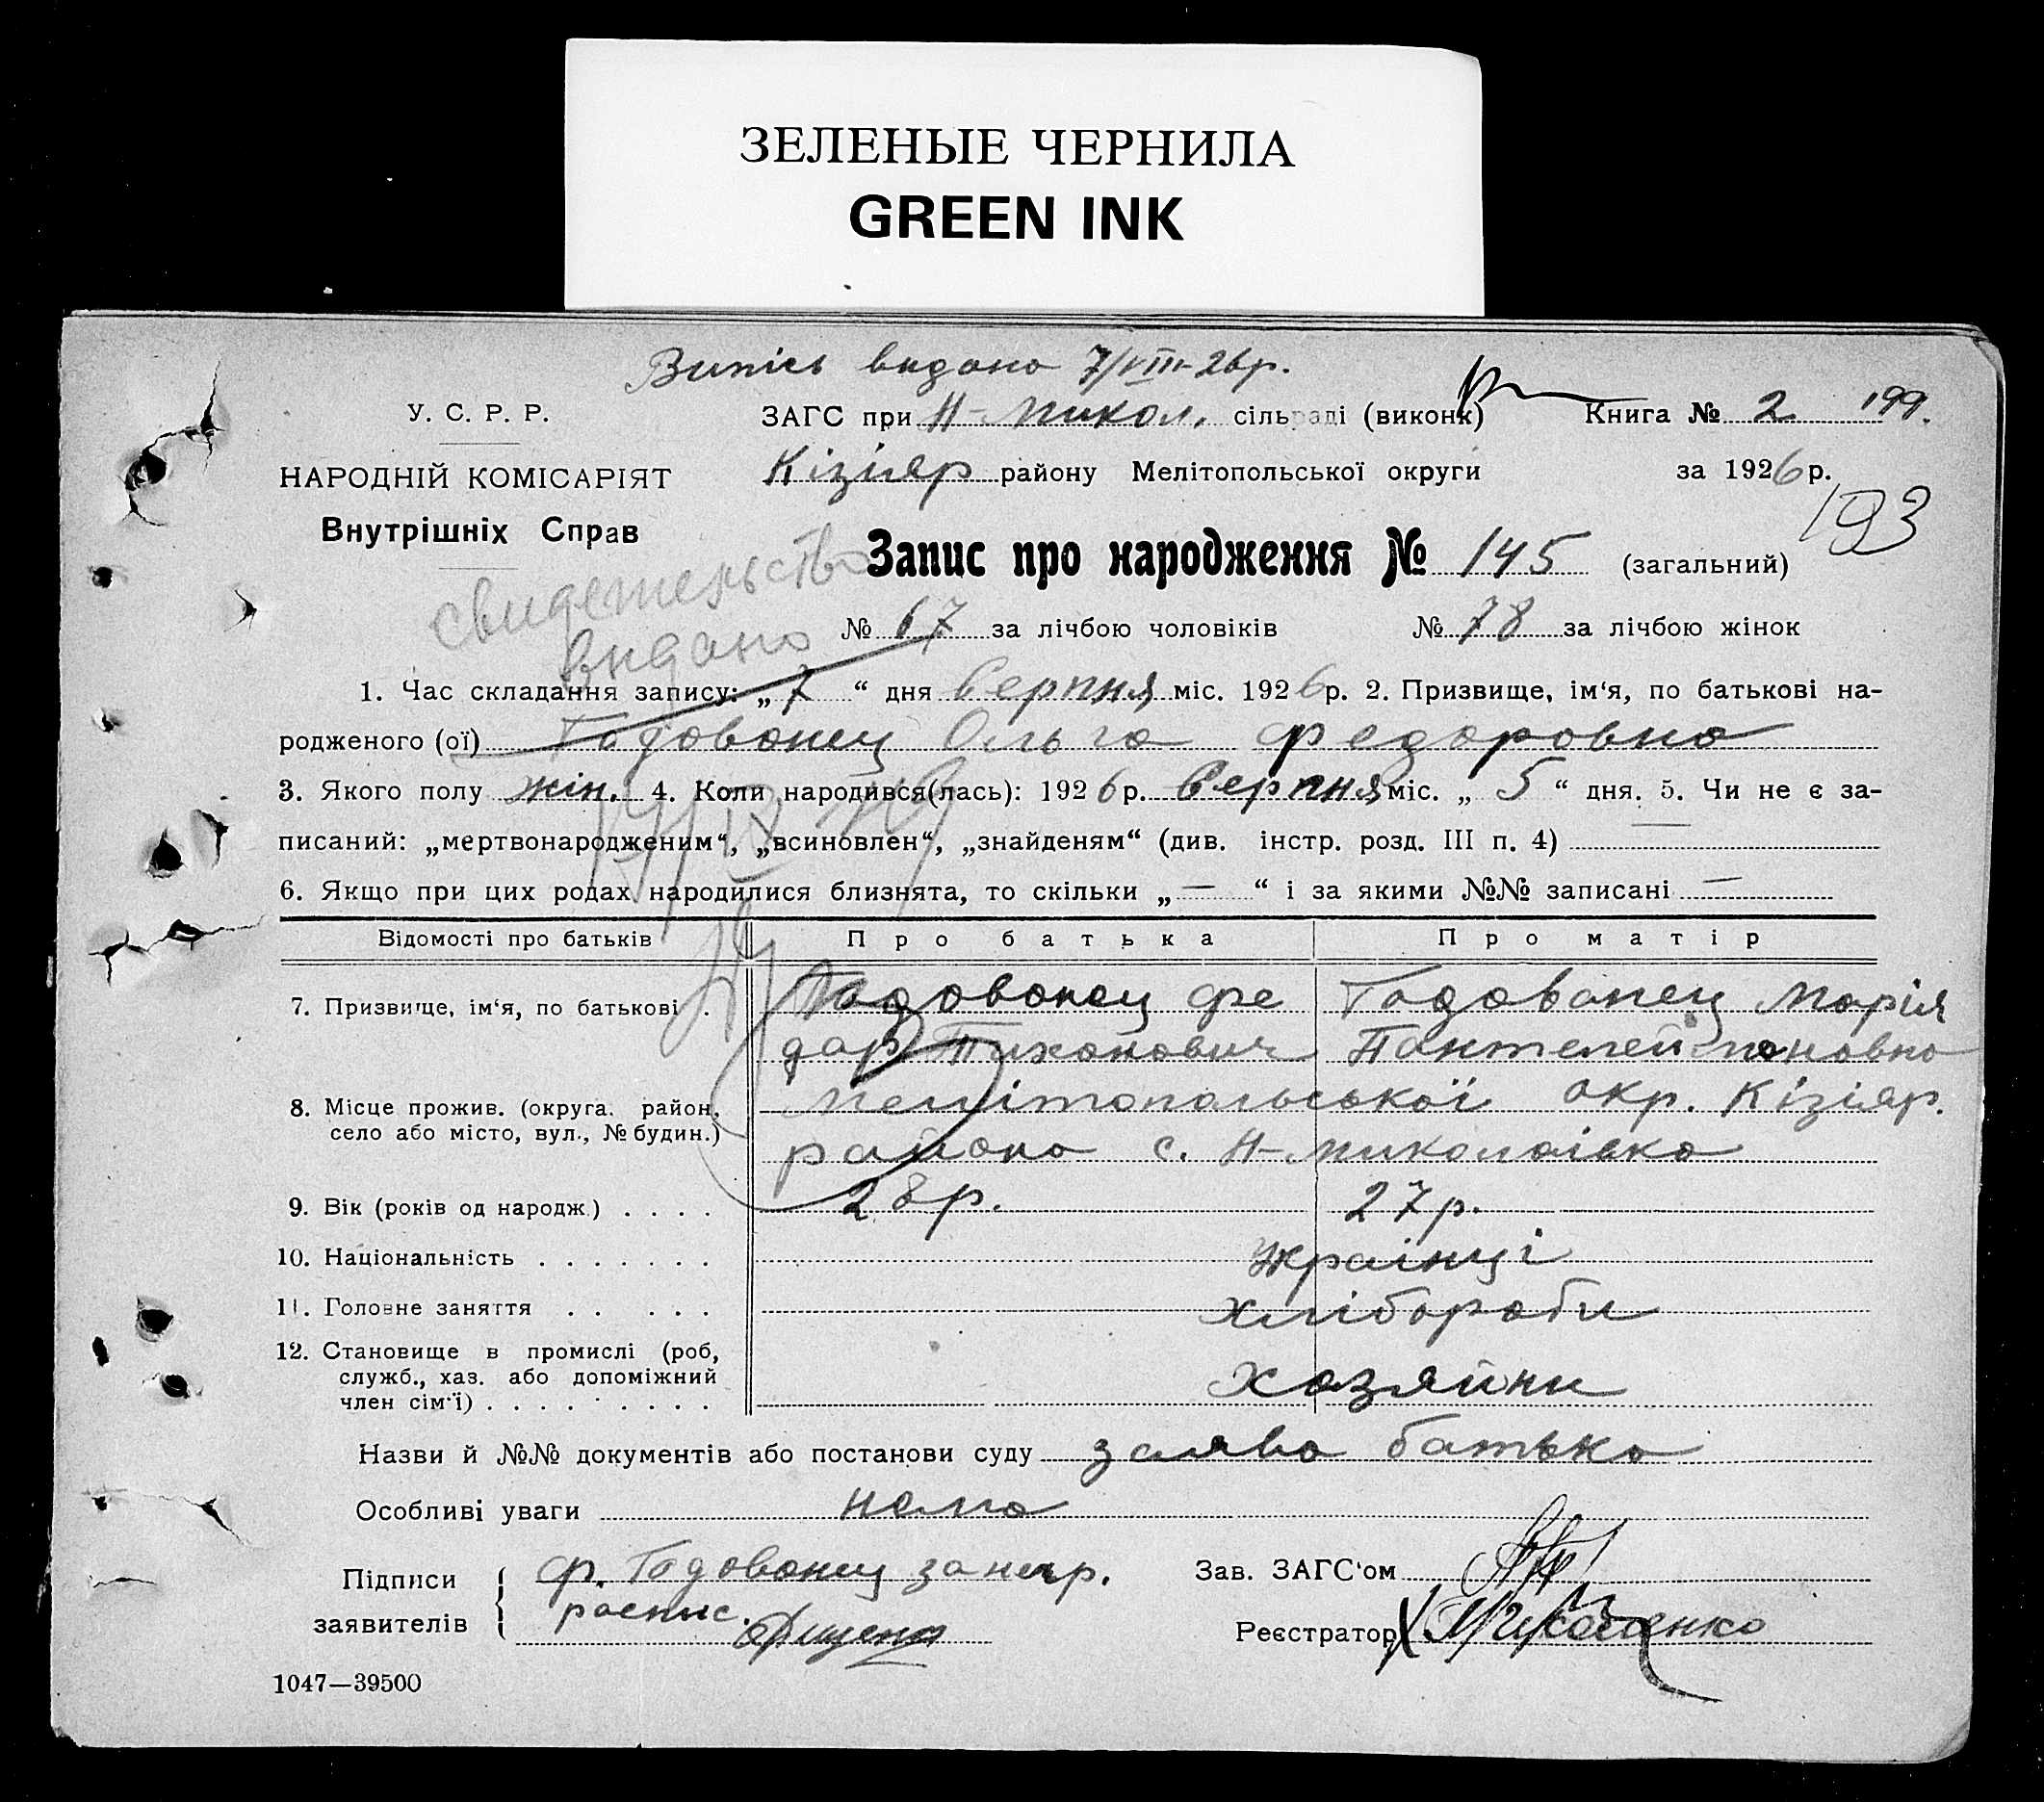 ЗЕЛЕНЫЕ ЧЕРНИЛА
GREEN INK
Випісь видано 7/VIII-26р.
У. С. Р. Р.
ЗАГС при Н-Микол. сільраді (виконк)
Книга № 2 199.
НАРОДНІЙ КОМІСАРІЯТ
Кізіяр району Мелітопольської округи
за 1926р.
193
Внутрішніх Справ
Запис про народження № 145 (загальний)
свидетельство
видано
№ 67 за лічбою чоловіків № 78 за лічбою жінок
1. Час складання запису: „ 7 “ дня Серпня міс. 1926р. 2. Призвище, ім‘я, по батькові на-
родженого (ої) Годованец Ольга Федоровна
3. Якого полу жін. 4. Коли народився(лась): 1926р. Серпня міс. „ 5 “ дня. 5. Чи не є за-
писаний: „мертвонародженим“, „всиновлен“, „знайденям“ (див. інстр. розд. III п. 4)
6. Якщо при цих родах народилися близнята, то скільки „ — “ і за якими №№ записані —
Відомості про батьків Про батька Про матір
7. Призвище, ім‘я, по батькові . Годованец Фе Годованец Марія
дор Тихонович Пантелеймоновна
8. Місце прожив. (округа, район, Мелітопольської окр. Кізіяр.
село або місто, вул., № будин.) району с. Н-Миколаівка
9. Вік (років од народж.) . . . . 28р. 27р.
10. Національність . . . . . . . Украінці
11. Головне заняття . . . . . Хлібороби
12. Становище в промислі (роб,
служб., хаз. або допоміжний Хозяйни
член сім‘ї) . . . . . . . . . .
Назви й №№ документів або постанови суду заява батька
Особливі уваги нема
Підписи
заявителів
Ф. Годованец за негр.
роспис.
Зав. ЗАГС‘ом
Реєстратор
1047—39500